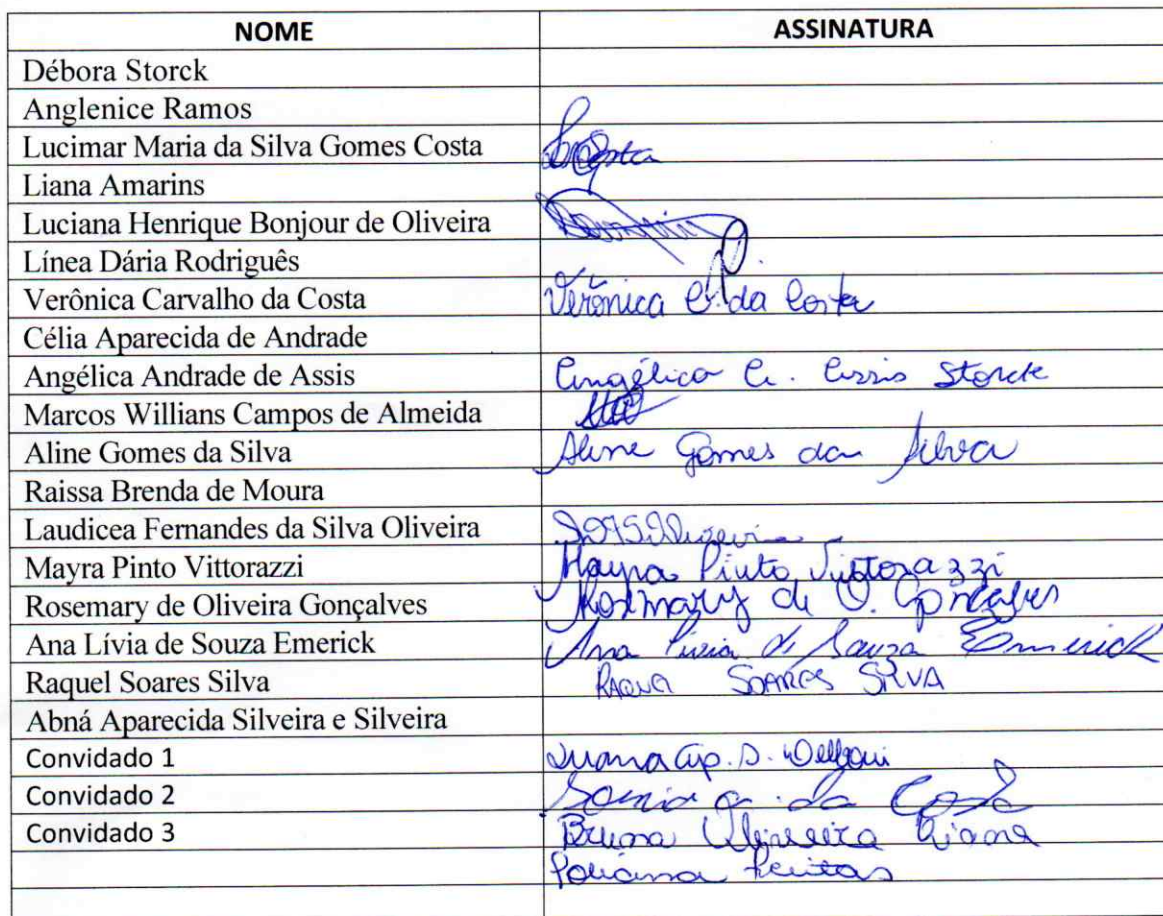 NOME ASSINATURA
Débora Storck
Anglenice Ramos
Lucimar Maria da Silva Gomes Costa
Liana Amarins
Luciana Henrique Bonjour de Oliveira
Línea Dária Rodriguês
Verônica Carvalho da Costa Verônica C. da Costa
Célia Aparecida de Andrade
Angélica Andrade de Assis Angélica A. Assis Storck
Marcos Willians Campos de Almeida
Aline Gomes da Silva Aline Gomes da Silva
Raissa Brenda de Moura
Laudicea Fernandes da Silva Oliveira
Mayra Pinto Vittorazzi Mayra Pinto Vittorazzi
Rosemary de Oliveira Gonçalves Rosemary de O. Gonçalves
Ana Lívia de Souza Emerick Ana Livia de Souza Emerick
Raquel Soares Silva RAQUEL SOARES SILVA
Abná Aparecida Silveira e Silveira
Convidado 1
Convidado 2 da Costa
Convidado 3 Bruna
Poliana Freitas